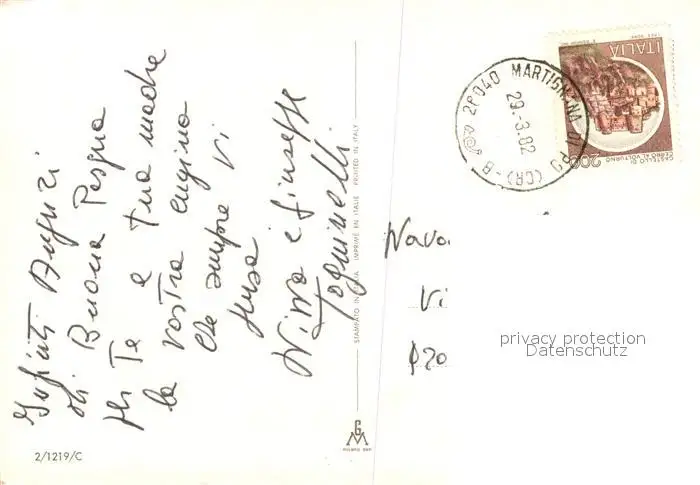 Infiniti Auguri
di Buona Pasqua
a Te e tua madre
la vostra cugina
che sempre vi
pensa
Nina e Giuseppe
STAMPATO IN ITALIA IMPRIMÉ EN ITALIE PRINTED IN ITALY
2/1219/C
GM
26040 MARTIGNANA DI PO (CR) - B
29.-3.82
ITALIA
200
CASTELLO DI
CERRO AL VOLTURNO
Nava
Vi
P20
privacy protection
Datenschutz